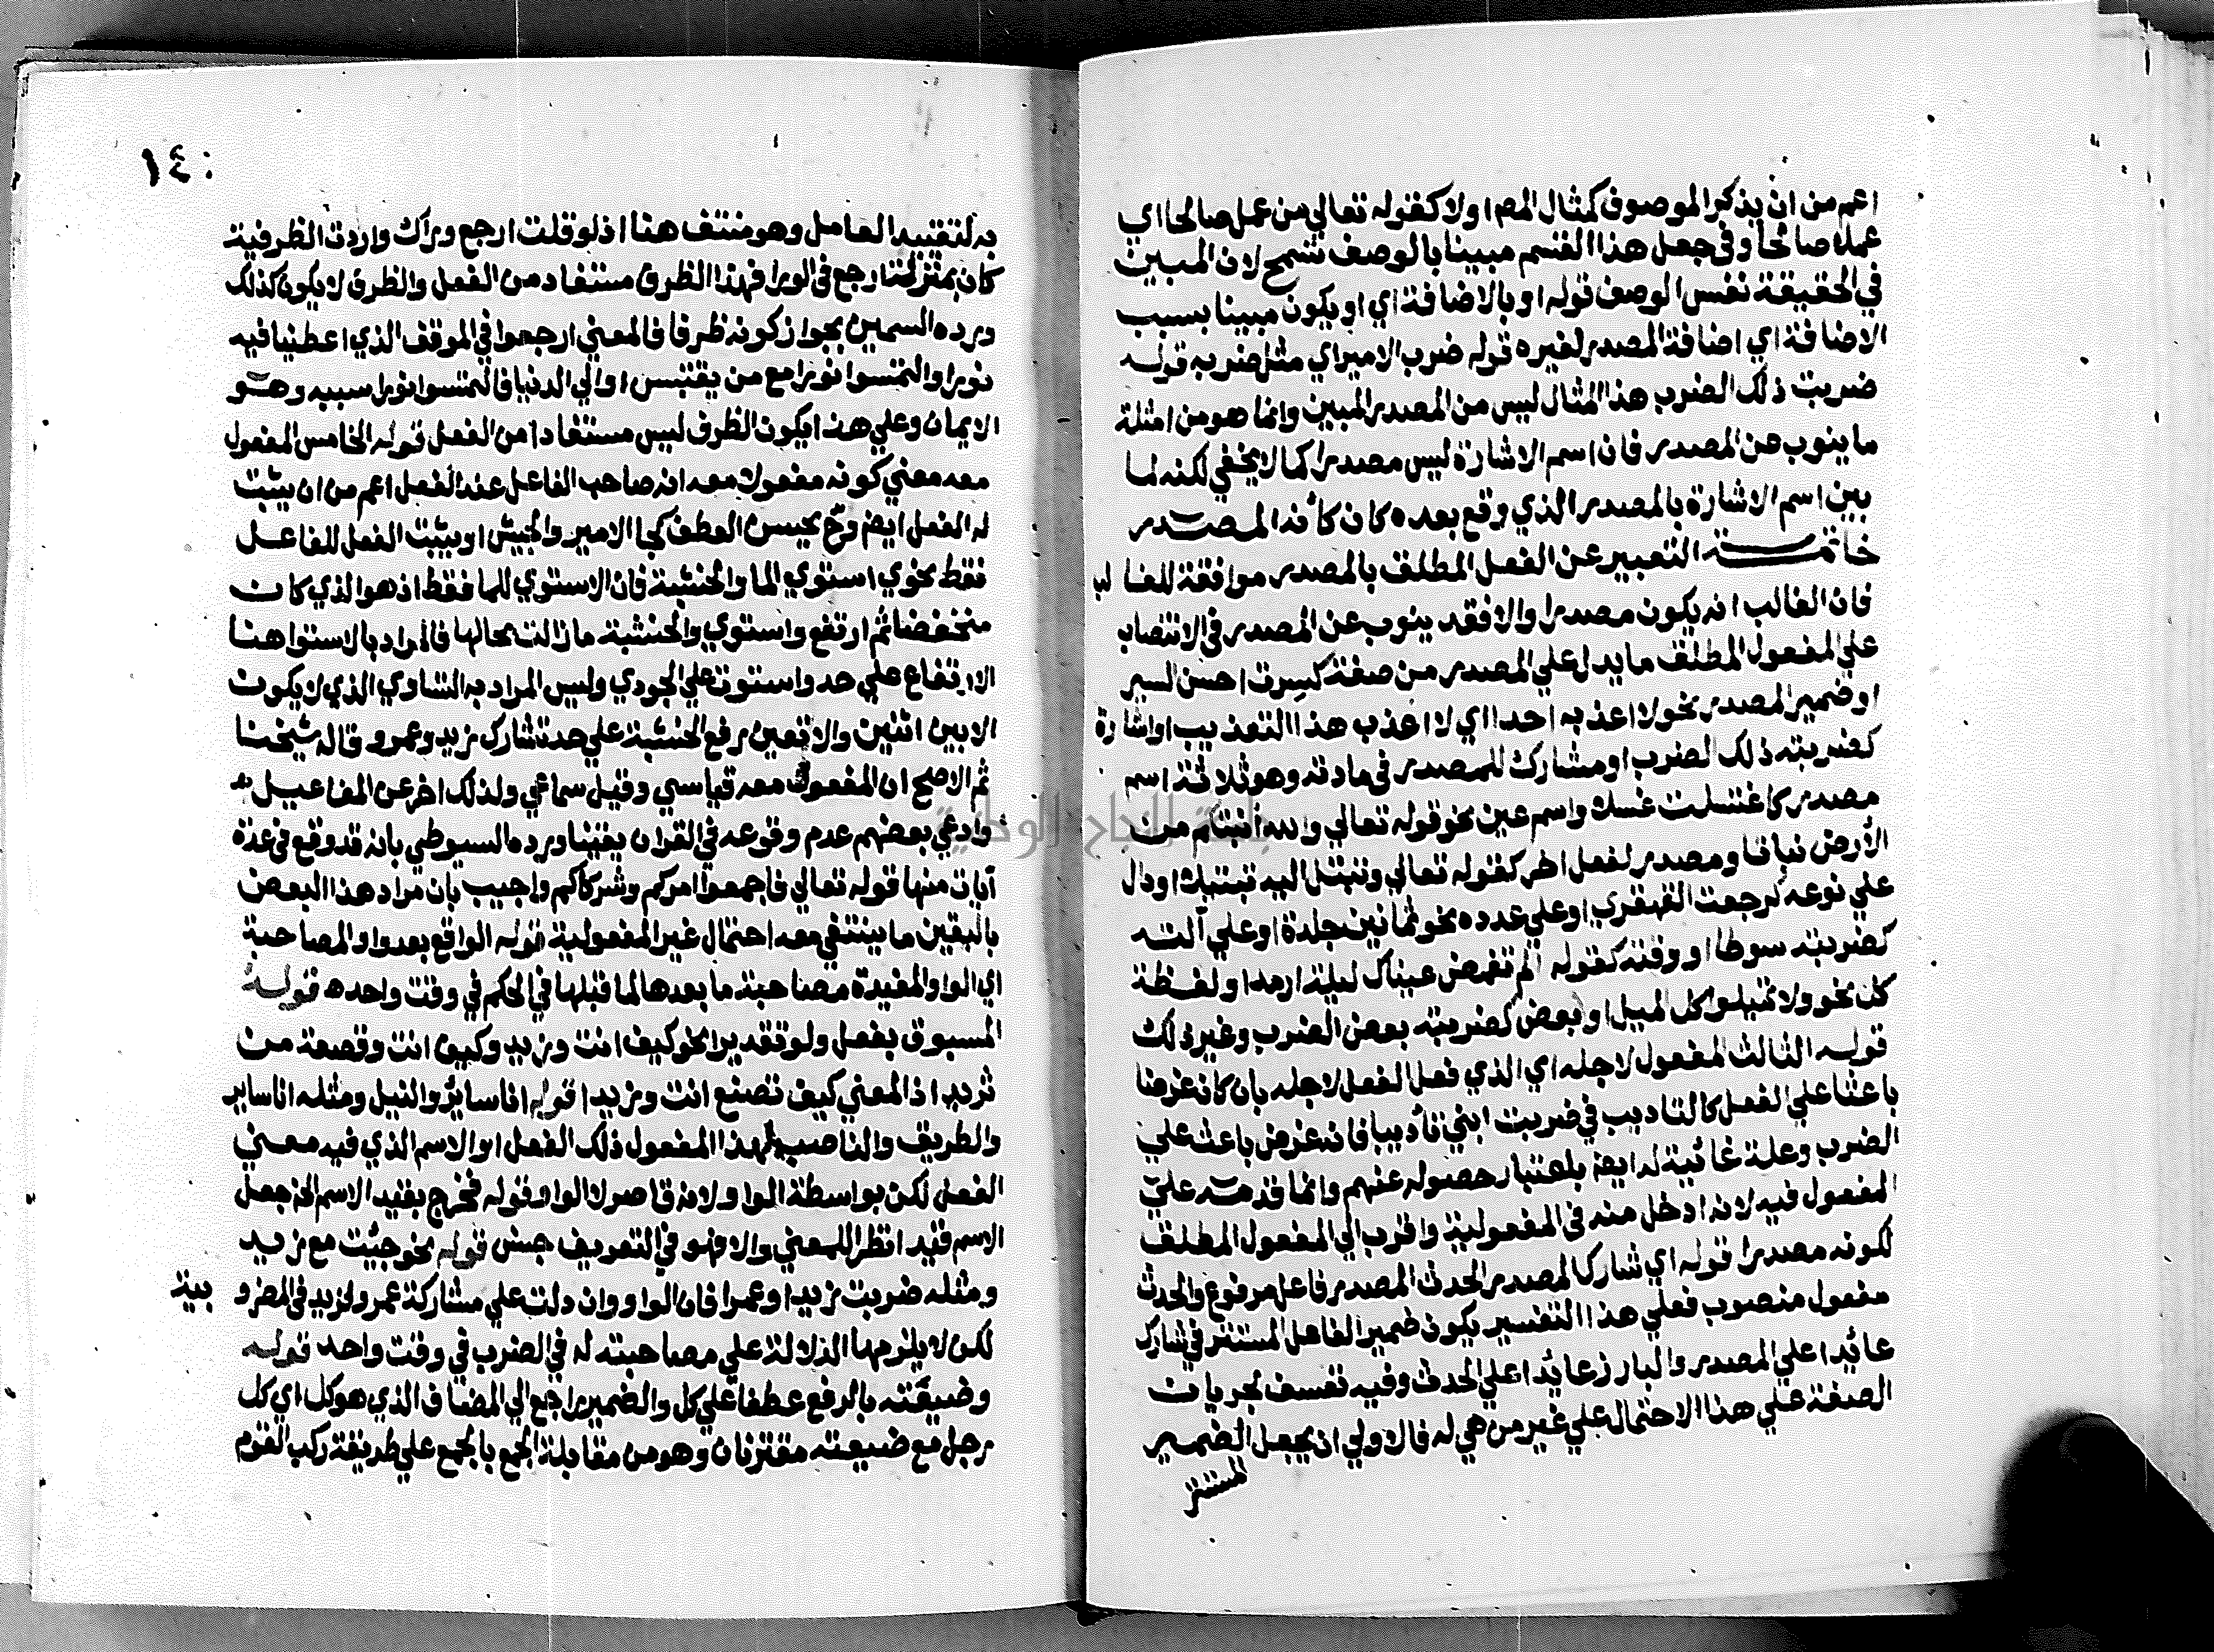 اعم من ان يذكر الموصوف كمثال المص اولا كقوله تعالي من عمل صالحا اي
عملا صالحا وفي جعل هذا القسم مبينا بالوصف تسمح لان المبين
في الحقيقة نفس الوصف قوله او بالاضافة اي او يكون مبينا بسبب
الاضافة اي اضافة المصدر لغيره قوله ضرب الامير اي مثل ضربه قوله
ضربت ذلك الضرب هذا المثال ليس من المصدر المبين وانما هو من امثلة
ما ينوب عن المصدر فان اسم الاشارة ليس مصدرا كما لا يخفي لكنه لما
بين اسم الاشارة بالمصدر الذي وقع بعده كان كأنه المصدر
خاتمة التعبير عن الفعل المطلق بالمصدر موافقة للغالب
فان الغالب انه يكون مصدرا والا فقد ينوب عن المصدر في الانتصاب
علي المفعول المطلق ما يدل علي المصدر من صفة كسرت احسن السير
او ضمير المصدر نحو لا اعذبه احدا اي لا اعذب هذا التعذيب او اشارة
كضربته ذلك الضرب او مشارك للمصدر في مادته وهو ثلاثة اسم
مصدر كاغتسلت غسلا واسم عين نحو قوله تعالي والله انبتكم من
الأرض نباتا ومصدر لفعل اخر كقوله تعالي وتبتل اليه تبتيلا او دال
علي نوعه كرجعت القهقري او علي عدده نحو ثمانين جلدة او علي آلته
كضربته سوطا او وقته كقوله الم تغمض عيناك ليلة ارمدا او لفظة
كل نحو ولا تميلوا كل الميل او بعض كضربته بعض الضرب وغير ذلك
قوله الثالث المفعول لاجله اي الذي فعل الفعل لاجله بان كان غرضا
باعثا علي الفعل كالتاديب في ضربت ابني تأديبا فانه غرض باعث علي
الضرب وعلة غائية له ايضا باعتبار حصوله عنهم وانما قدمه علي
المفعول فيه لانه ادخل منه في المفعولية واقرب الي المفعول المطلق
لكونه مصدرا قوله اي شاركا لمصدر الحدث المصدر فاعل مرفوع والحدث
مفعول منصوب فعلي هذا التفسير يكون ضمير الفاعل المستتر في شارك
عائدا علي المصدر والبارز عائدا علي الحدث وفيه تعسف لجريان
الصفة علي هذا الاحتمال علي غير من هي له فالاولي ان يجعل الضمير
المستتر
١٤٠
به لتقييد العامل وهو منتف هنا اذ لو قلت ارجع وراك واردت الظرفية
كان بمنزلة ارجع في الورا فهذا الظرف مستفاد من الفعل والظرف لا يكون كذلك
ورده السمين بجواز كونه ظرفا فالمعني ارجعوا في الموقف الذي اعطينا فيه
نورا والتمسوا نورا مع من يقتبس او الي الدنيا فالتمسوا نورا سببه وهو
الايمان وعلي هذا يكون الظرف ليس مستفادا من الفعل قوله الخامس المفعول
معه معني كونه مفعولا معه انه صاحب الفاعل عند الفعل اعم من ان يثبت
له الفعل ايضا وح يحسن العطف كجا الامير والجيش او يثبت الفعل للفاعل
فقط نحوي استوي الما والخشبة فان الاستوي للما فقط اذ هو الذي كان
منخفضا ثم ارتفع واستوي والخشبة ما زالت بحالها فالمراد بالاستوا هنا
الارتفاع علي حد واستوت علي الجودي وليس المراد به التساوي الذي لا يكون
الا بين اثنين والا تعين رفع الخشبة علي حد تشارك زيد وعمرو قاله شيخنا
ثم الاصح ان المفعول معه قياسي وقيل سماعي ولذلك اخر عن المفاعيل
وادعي بعضهم عدم وقوعه في القران يقينا ورده السيوطي بانه قد وقع في عدة
آيات منها قوله تعالي فاجمعوا امركم وشركاكم واجيب بان مراد هذا البعض
باليقين ما ينتفي معه احتمال غير المفعولية قوله الواقع بعد واو المصاحبة
اي الواو المفيدة مصاحبة ما بعدها لما قبلها في الحكم في وقت واحده قوله
المسبوق بفعل ولو تقديرا نحو كيف انت وزيد وكيف انت وقصعة من
ثريد اذ المعني كيف تصنع انت وزيدا قوله انا سائر والنيل ومثله انا ساير
والطريق والناصب لهذا المفعول ذلك الفعل او الاسم الذي فيه معني
الفعل لكن بواسطة الواو لانه قاصر لا الواو قوله فخرج بقيد الاسم الخ جعل
الاسم قيدا نظرا للمعني والا فهو في التعريف جنس قوله نحو جئت مع زيد
ومثله ضربت زيدا وعمرا فان الواو وان دلت علي مشاركة عمرو لزيد في المضرو بية
لكن لا يلزمها الدلالة علي مصاحبته له في الضرب في وقت واحد قوله
وضيعته بالرفع عطفا علي كل والضمير راجع الي المضاف الذي هو كل اي كل
رجل مع ضيعته مقترنان وهو من مقابلة الجمع بالجمع علي طريقة ركب القوم
جامعة النجاح الوطنية